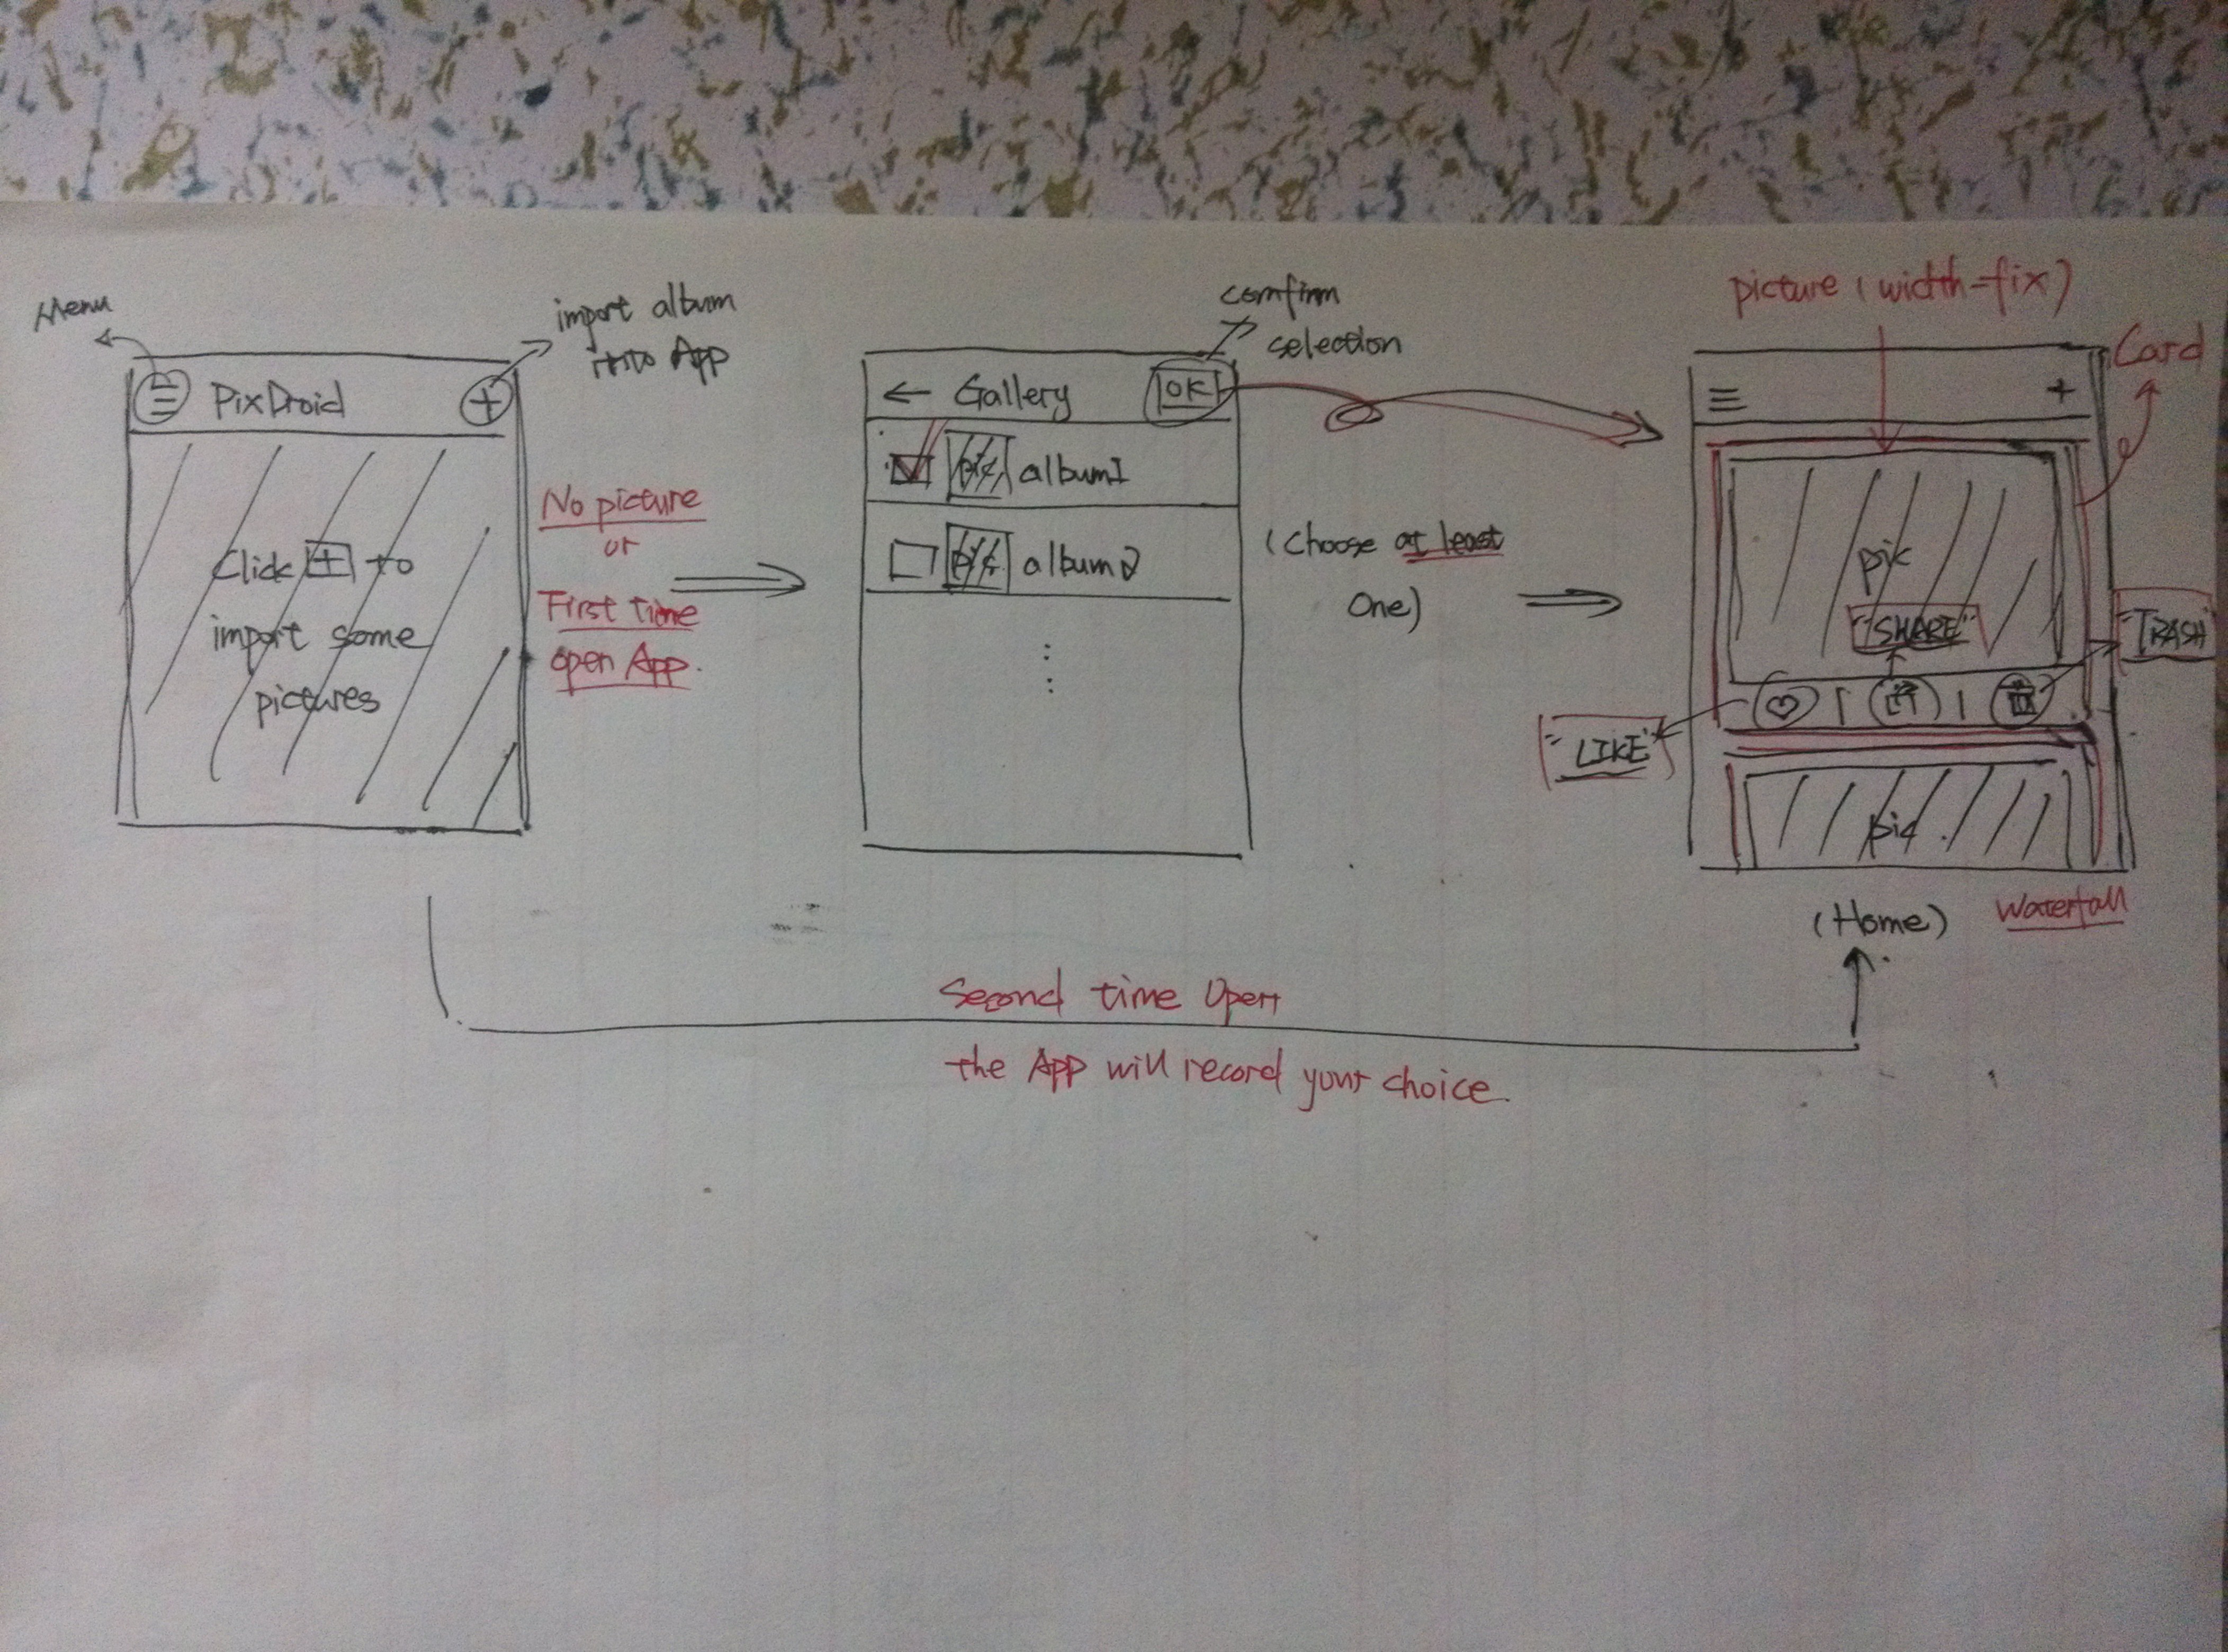 Menu
import album
into App
PixDroid
Click + to
import some
pictures
No picture
or
First time
open App.
comfirm
selection
← Gallery
OK
pic
album1
pic
album2
(choose at least
One)
picture (width=fix)
Card
+
pic
"SHARE"
"TRASH"
"LIKE"
pic
(Home)
Waterfall
Second time Open
the App will record your choice.